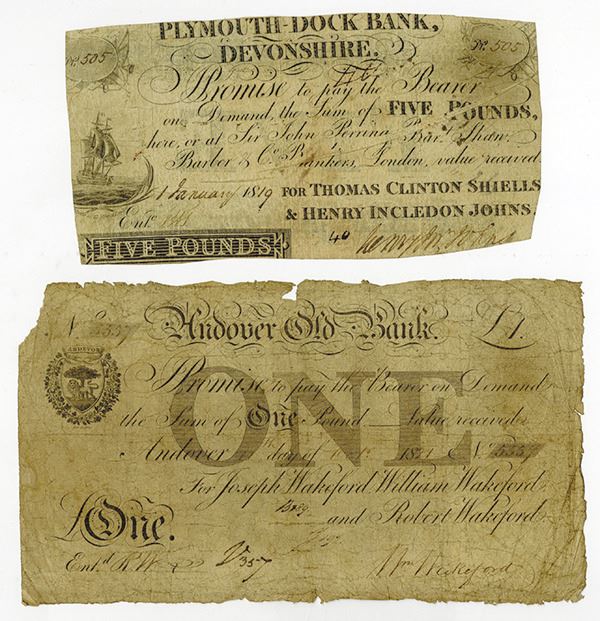 PLYMOUTH-DOCK BANK,
DEVONSHIRE.
No. 505
No. 505
I Promise to pay the Bearer
on Demand, the Sum of FIVE POUNDS,
here, or at Sir John Perring Bart. Shaw,
Barber & Co. Bankers, London, value received
1 January 1819 FOR THOMAS CLINTON SHIELLS
& HENRY INCLEDON JOHNS.
Entd.
40
FIVE POUNDS
Andover Old Bank.
£1.
ANDEVOR
I Promise to pay the Bearer on Demand
the Sum of One Pound Value received
ONE
Andover day of 1821 No 5357
For Joseph Wakeford William Wakeford
and Robert Wakeford
£One.
Entd. R.W.
V357
Wm Wakeford